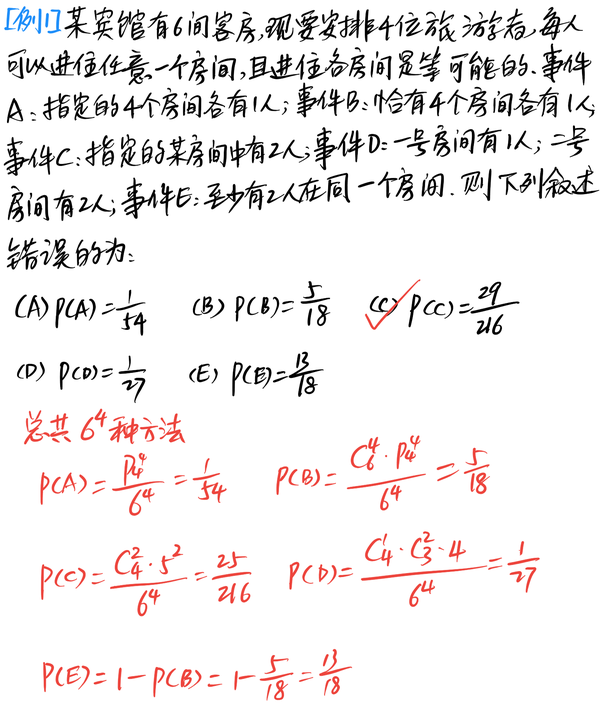 [例1] 某宾馆有6间客房,现要安排4位旅游者,每人
可以进住任意一个房间,且进住各房间是等可能的.事件
A:指定的4个房间各有1人;事件B:恰有4个房间各有1人;
事件C:指定的某房间中有2人;事件D:一号房间有1人;二号
房间有2人;事件E:至少有2人在同一个房间.则下列叙述
错误的为:
(A) P(A)=1/54 (B) P(B)=5/18 (C) P(C)=29/216
(D) P(D)=1/27 (E) P(E)=13/18
总共 6^4 种方法
P(A)=P_4^4/6^4=1/54 P(B)=C_6^4·P_4^4/6^4=5/18
P(C)=C_4^2·5^2/6^4=25/216 P(D)=C_4^1·C_3^2·4/6^4=1/27
P(E)=1-P(B)=1-5/18=13/18